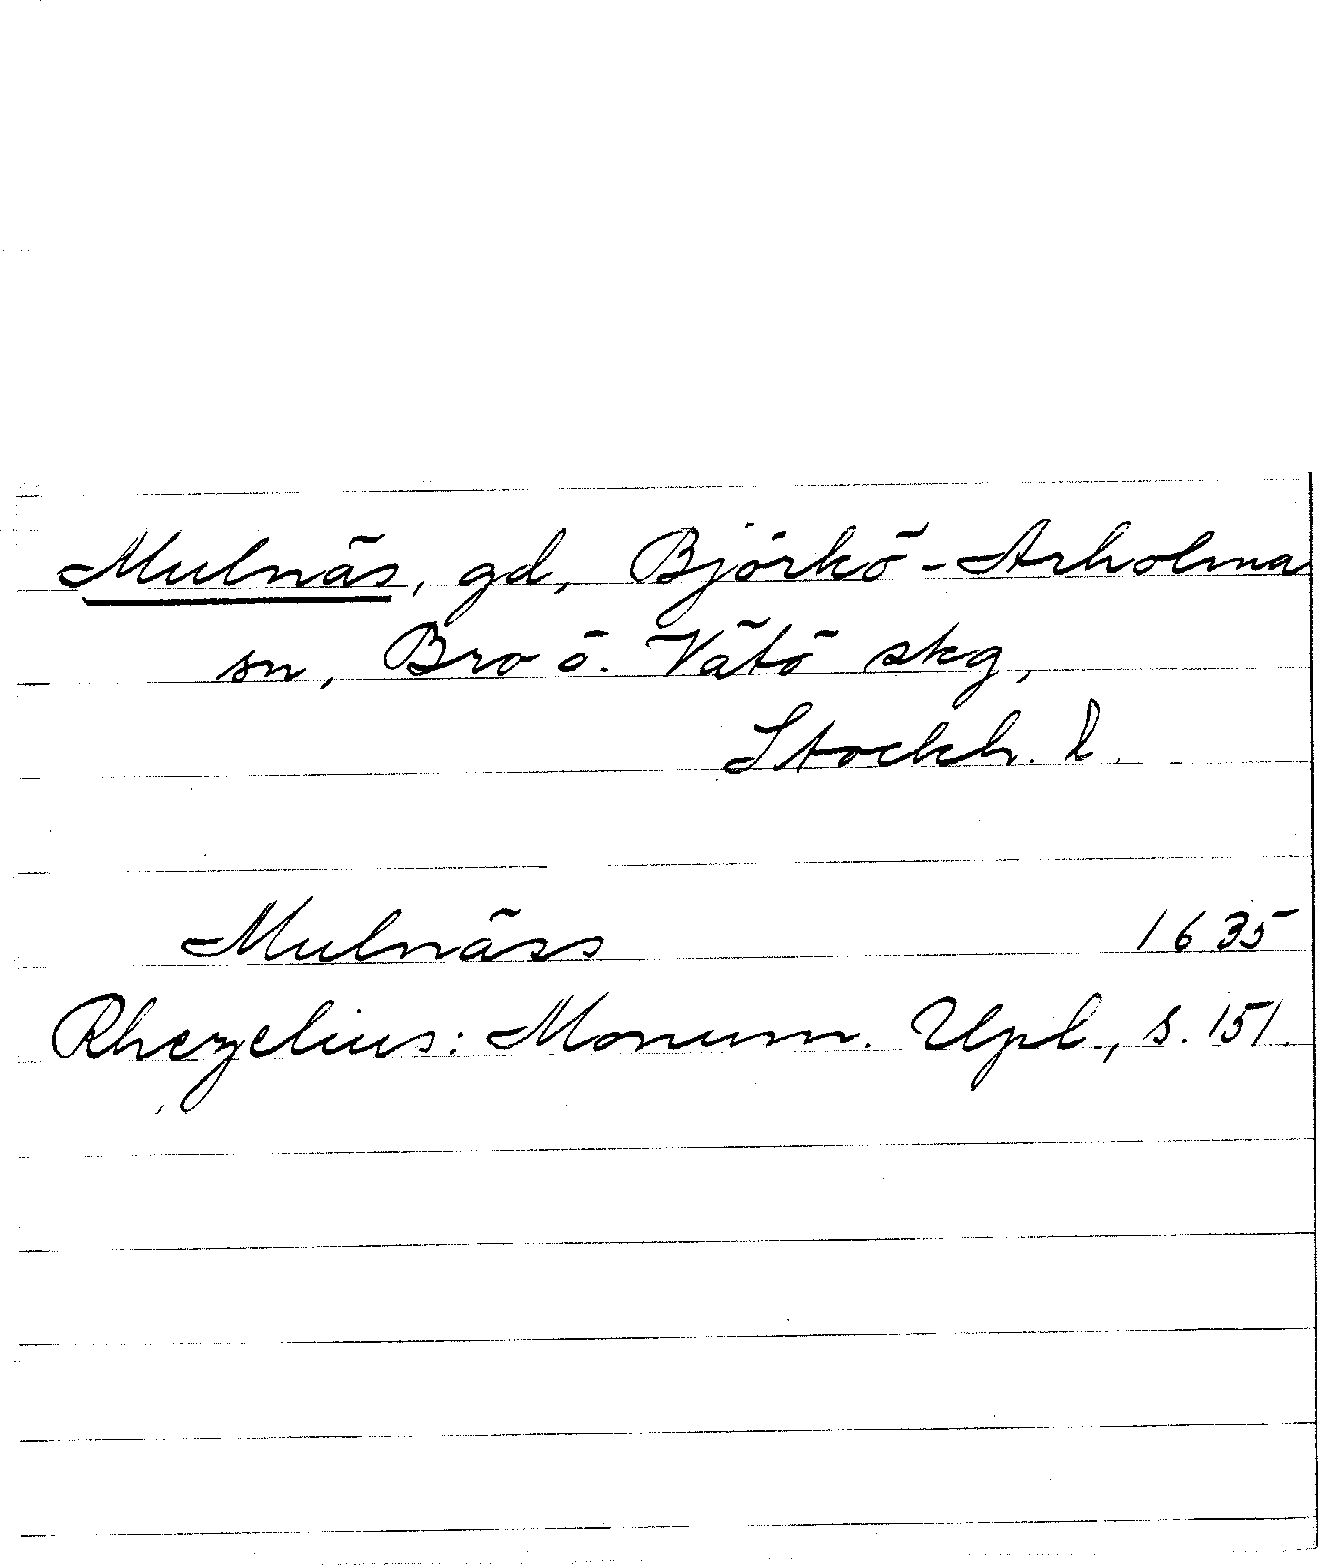 Mulnäs, gd, Björkö-Arholma
sn, Bro o. Vätö skg,
Stockh. l.
Mulnäss 1635
Rhezelius: Monum. Upl., s. 151.